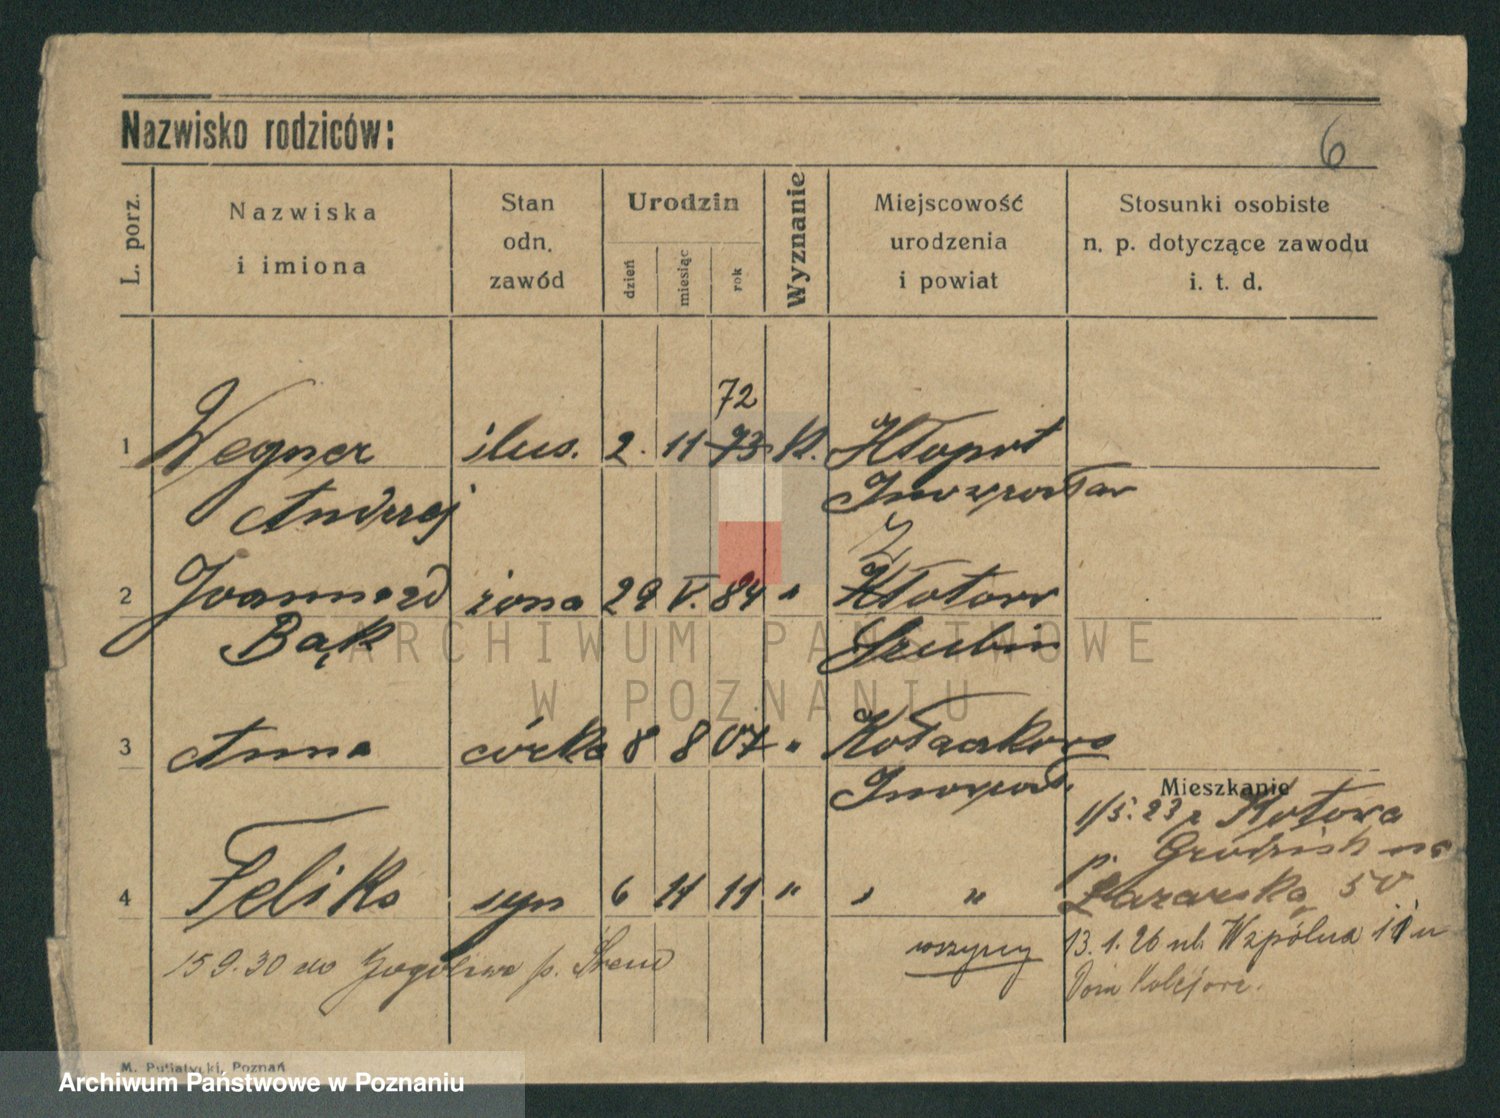 Nazwisko rodziców:
6
L. porz.
Nazwiska
i imiona
Stan
odn.
zawód
Urodzin
dzień
miesiąc
rok
Wyznanie
Miejscowość
urodzenia
i powiat
Stosunki osobiste
n. p. dotyczące zawodu
i. t. d.
72
1 Wegner ślus. 2. 11 73 K. Kłopot
Andrzej Inowrocław
2 żona 29 V. 84 "
Bąk Szubin
3 Anna córka 8 8 07 "
Mieszkanie
1/5. 23 z Kotowa
p. Grodzisk na
4 Feliks syn 6 11 11 " " "
Łazarska 5
wszyscy 13. 1. 26 ul. Wspólna
15 9. 30 do p. Śrem
Dom
M. Putiatycki, Poznań
ARCHIWUM PAŃSTWOWE
W POZNANIU
Archiwum Państwowe w Poznaniu